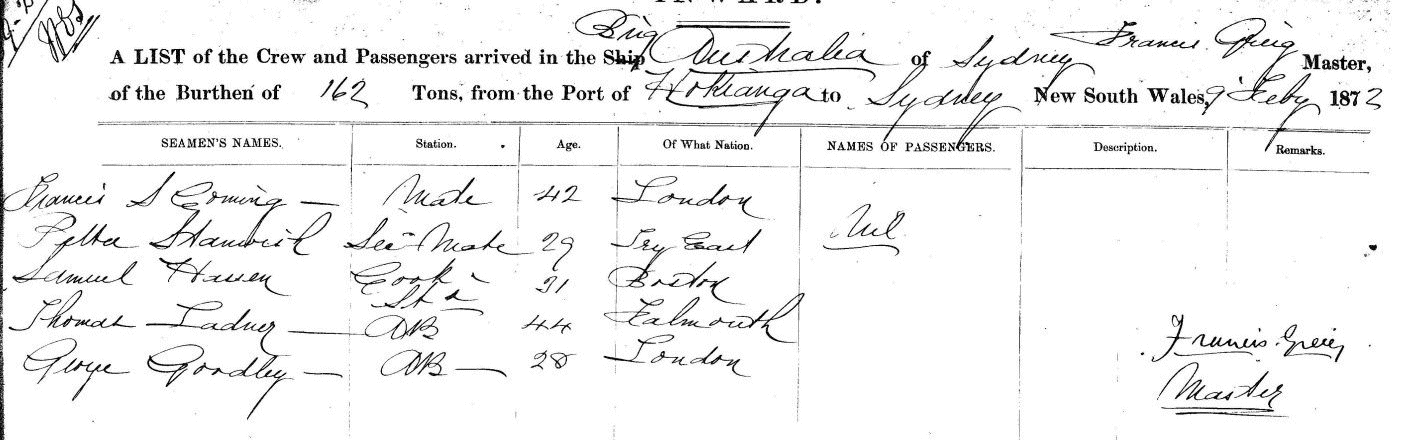 INWARD.
A LIST of the Crew and Passengers arrived in the Ship Brig Australia of Sydney Francis Greig Master,
of the Burthen of 162 Tons, from the Port of Hokianga to Sydney New South Wales, 9 Feby 1872
SEAMEN'S NAMES. Station. Age. Of What Nation. NAMES OF PASSENGERS. Description. Remarks.
Francis S Coming — Mate 42 London Nil
Sec Mate 29
Samuel Hassen Cook & St d 31 Boston
Thomas Ladner — AB 44 Falmouth
George Goodley — AB — 28 London
Francis Greig
Master